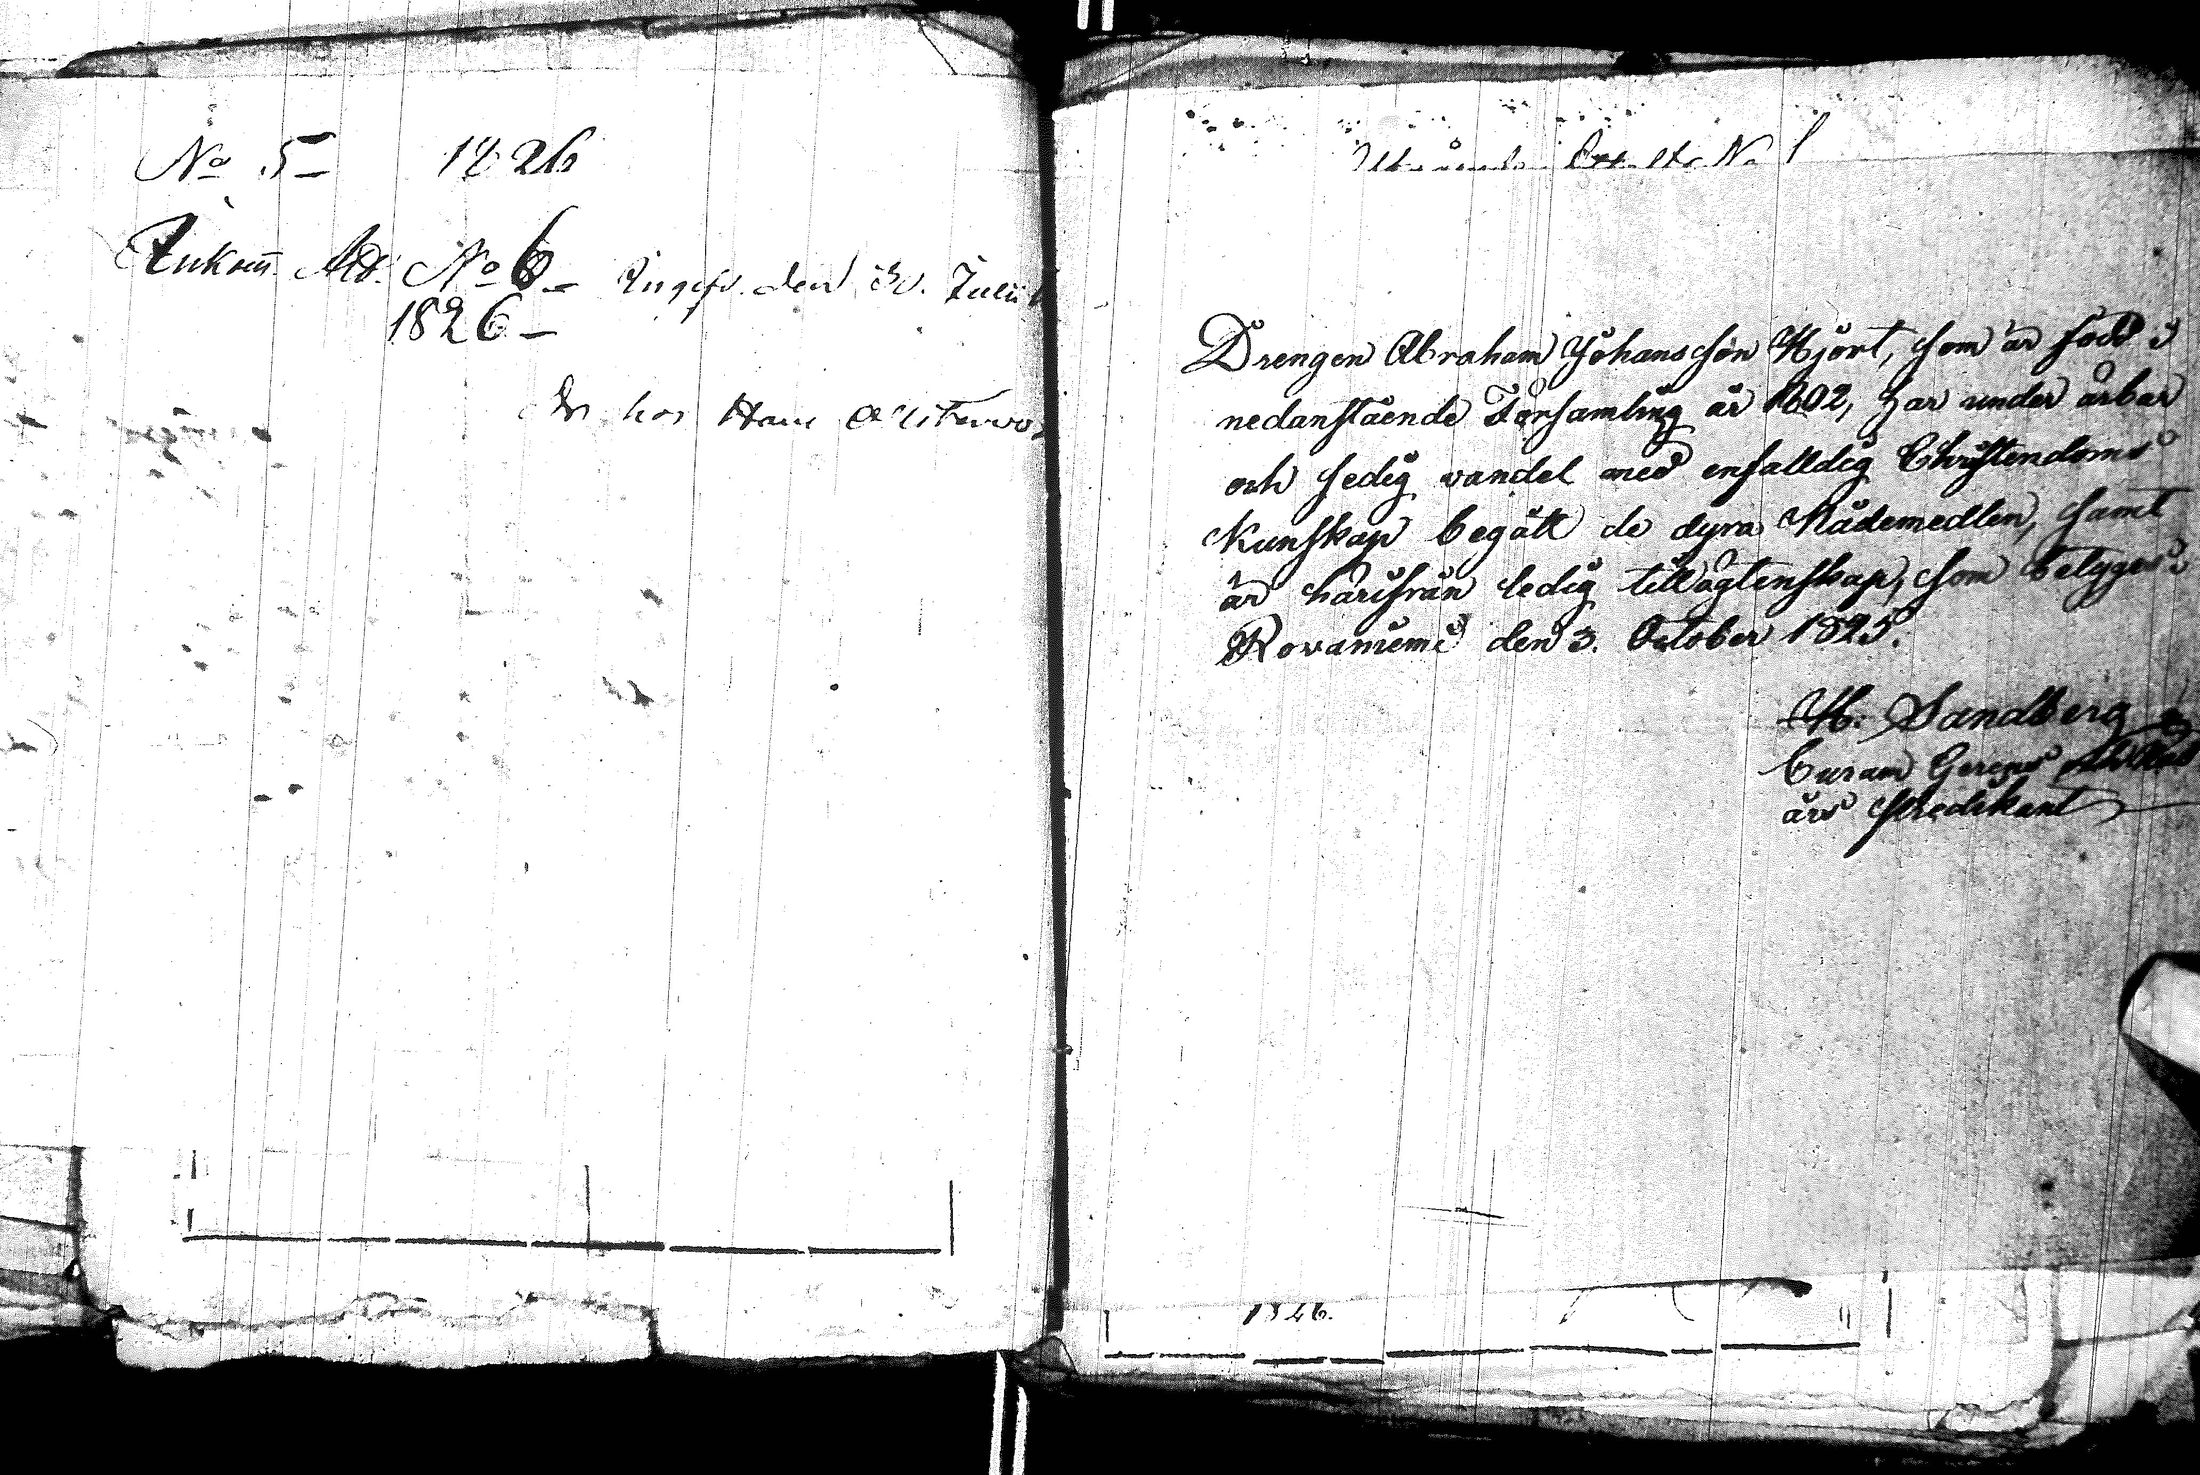 No 5- 1826
Ankom Att. No 6- Ingifv. den 30. Julii
1826-
Är hos Hans
No 1
Drengen Abraham Johansson Hjort, som är född i
nedanstående Församling år 1802, har under ärbar
och sedig vandel med enfalldig Christendoms
Kunskap begått de dyra Nådemedlen, samt
är härifrån ledig till ägtenskap, som betygas i
Rovaniemi den 3. October 1825.
H. Sandberg
Curam Gerens
ars Predikant
1826.